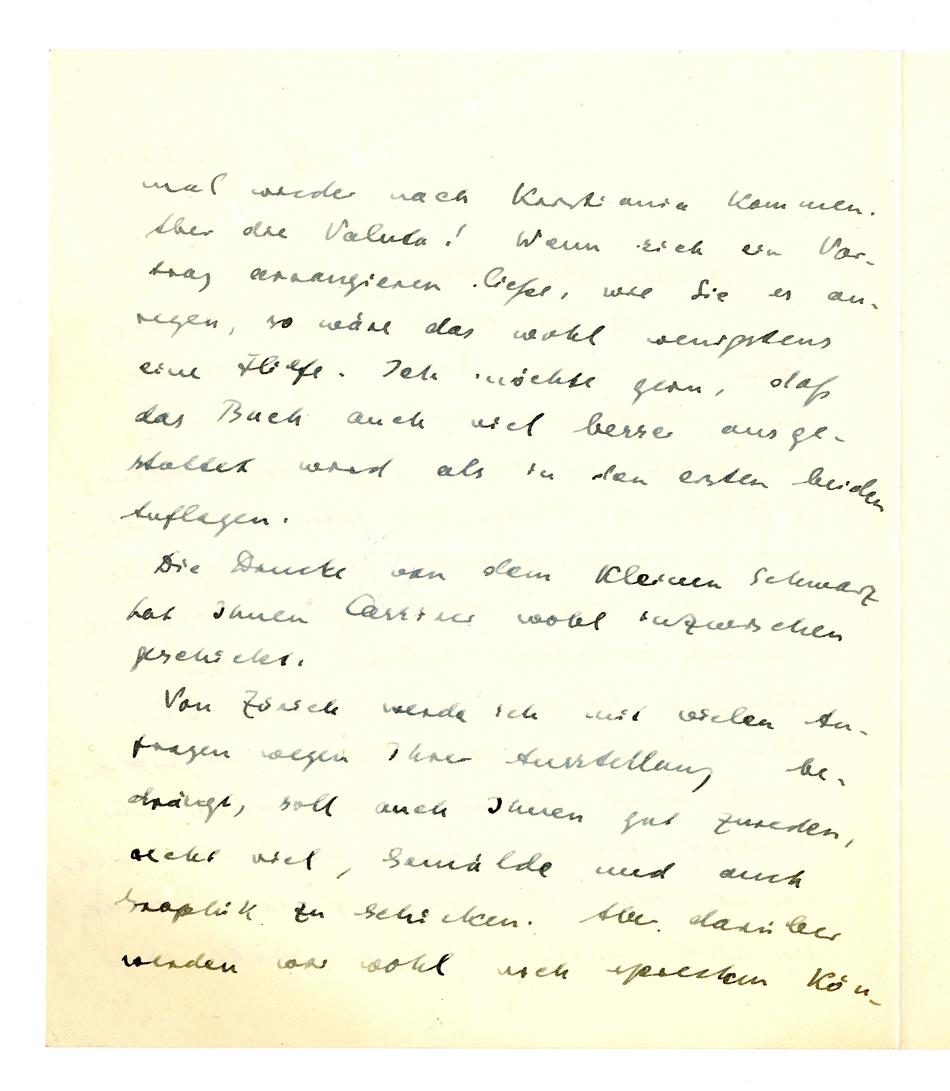 mal wieder nach Kristiania kommen.
Aber die Valuta! Wenn sich ein Vor-
trag arrangieren ließe, wie Sie es an-
regen, so wäre das wohl wenigstens
eine Hilfe. Ich möchte gern, daß
das Buch auch viel besser ausge-
stattet wird als in den ersten beiden
Auflagen.
Die Drucke von dem kleinen Schwarz
hat Ihnen Cassirer wohl inzwischen
geschickt.
Von Zürich werde ich mit vielen An-
fragen wegen Ihrer Ausstellung be-
drängt, soll auch Ihnen gut zureden,
recht viel, Gemälde und auch
Graphik zu schicken. Aber darüber
werden wir wohl noch sprechen kön-